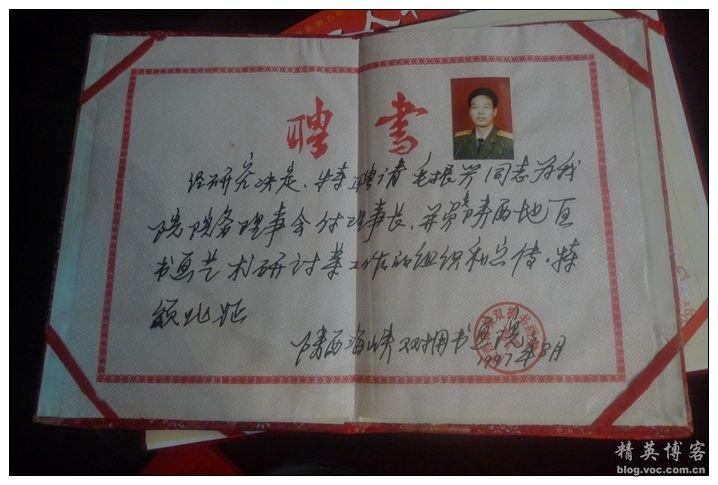 聘书
经研究决定，特聘请毛振兴同志为我
院院务理事会付理事长，并负责陕西地区
书画艺术研讨等工作的组织和宣传。特
颁此证
陕西海峡双拥书画院
1997年8月
双拥书画院
精英博客
blog.voc.com.cn